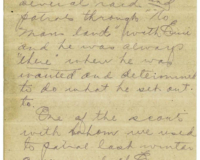 several raid and
patrols through "No
Mans land" with
and he was always
"there" when he was
wanted and determined
to do what he set out
to.
One of the scouts
with whom we used
to patrol last winter